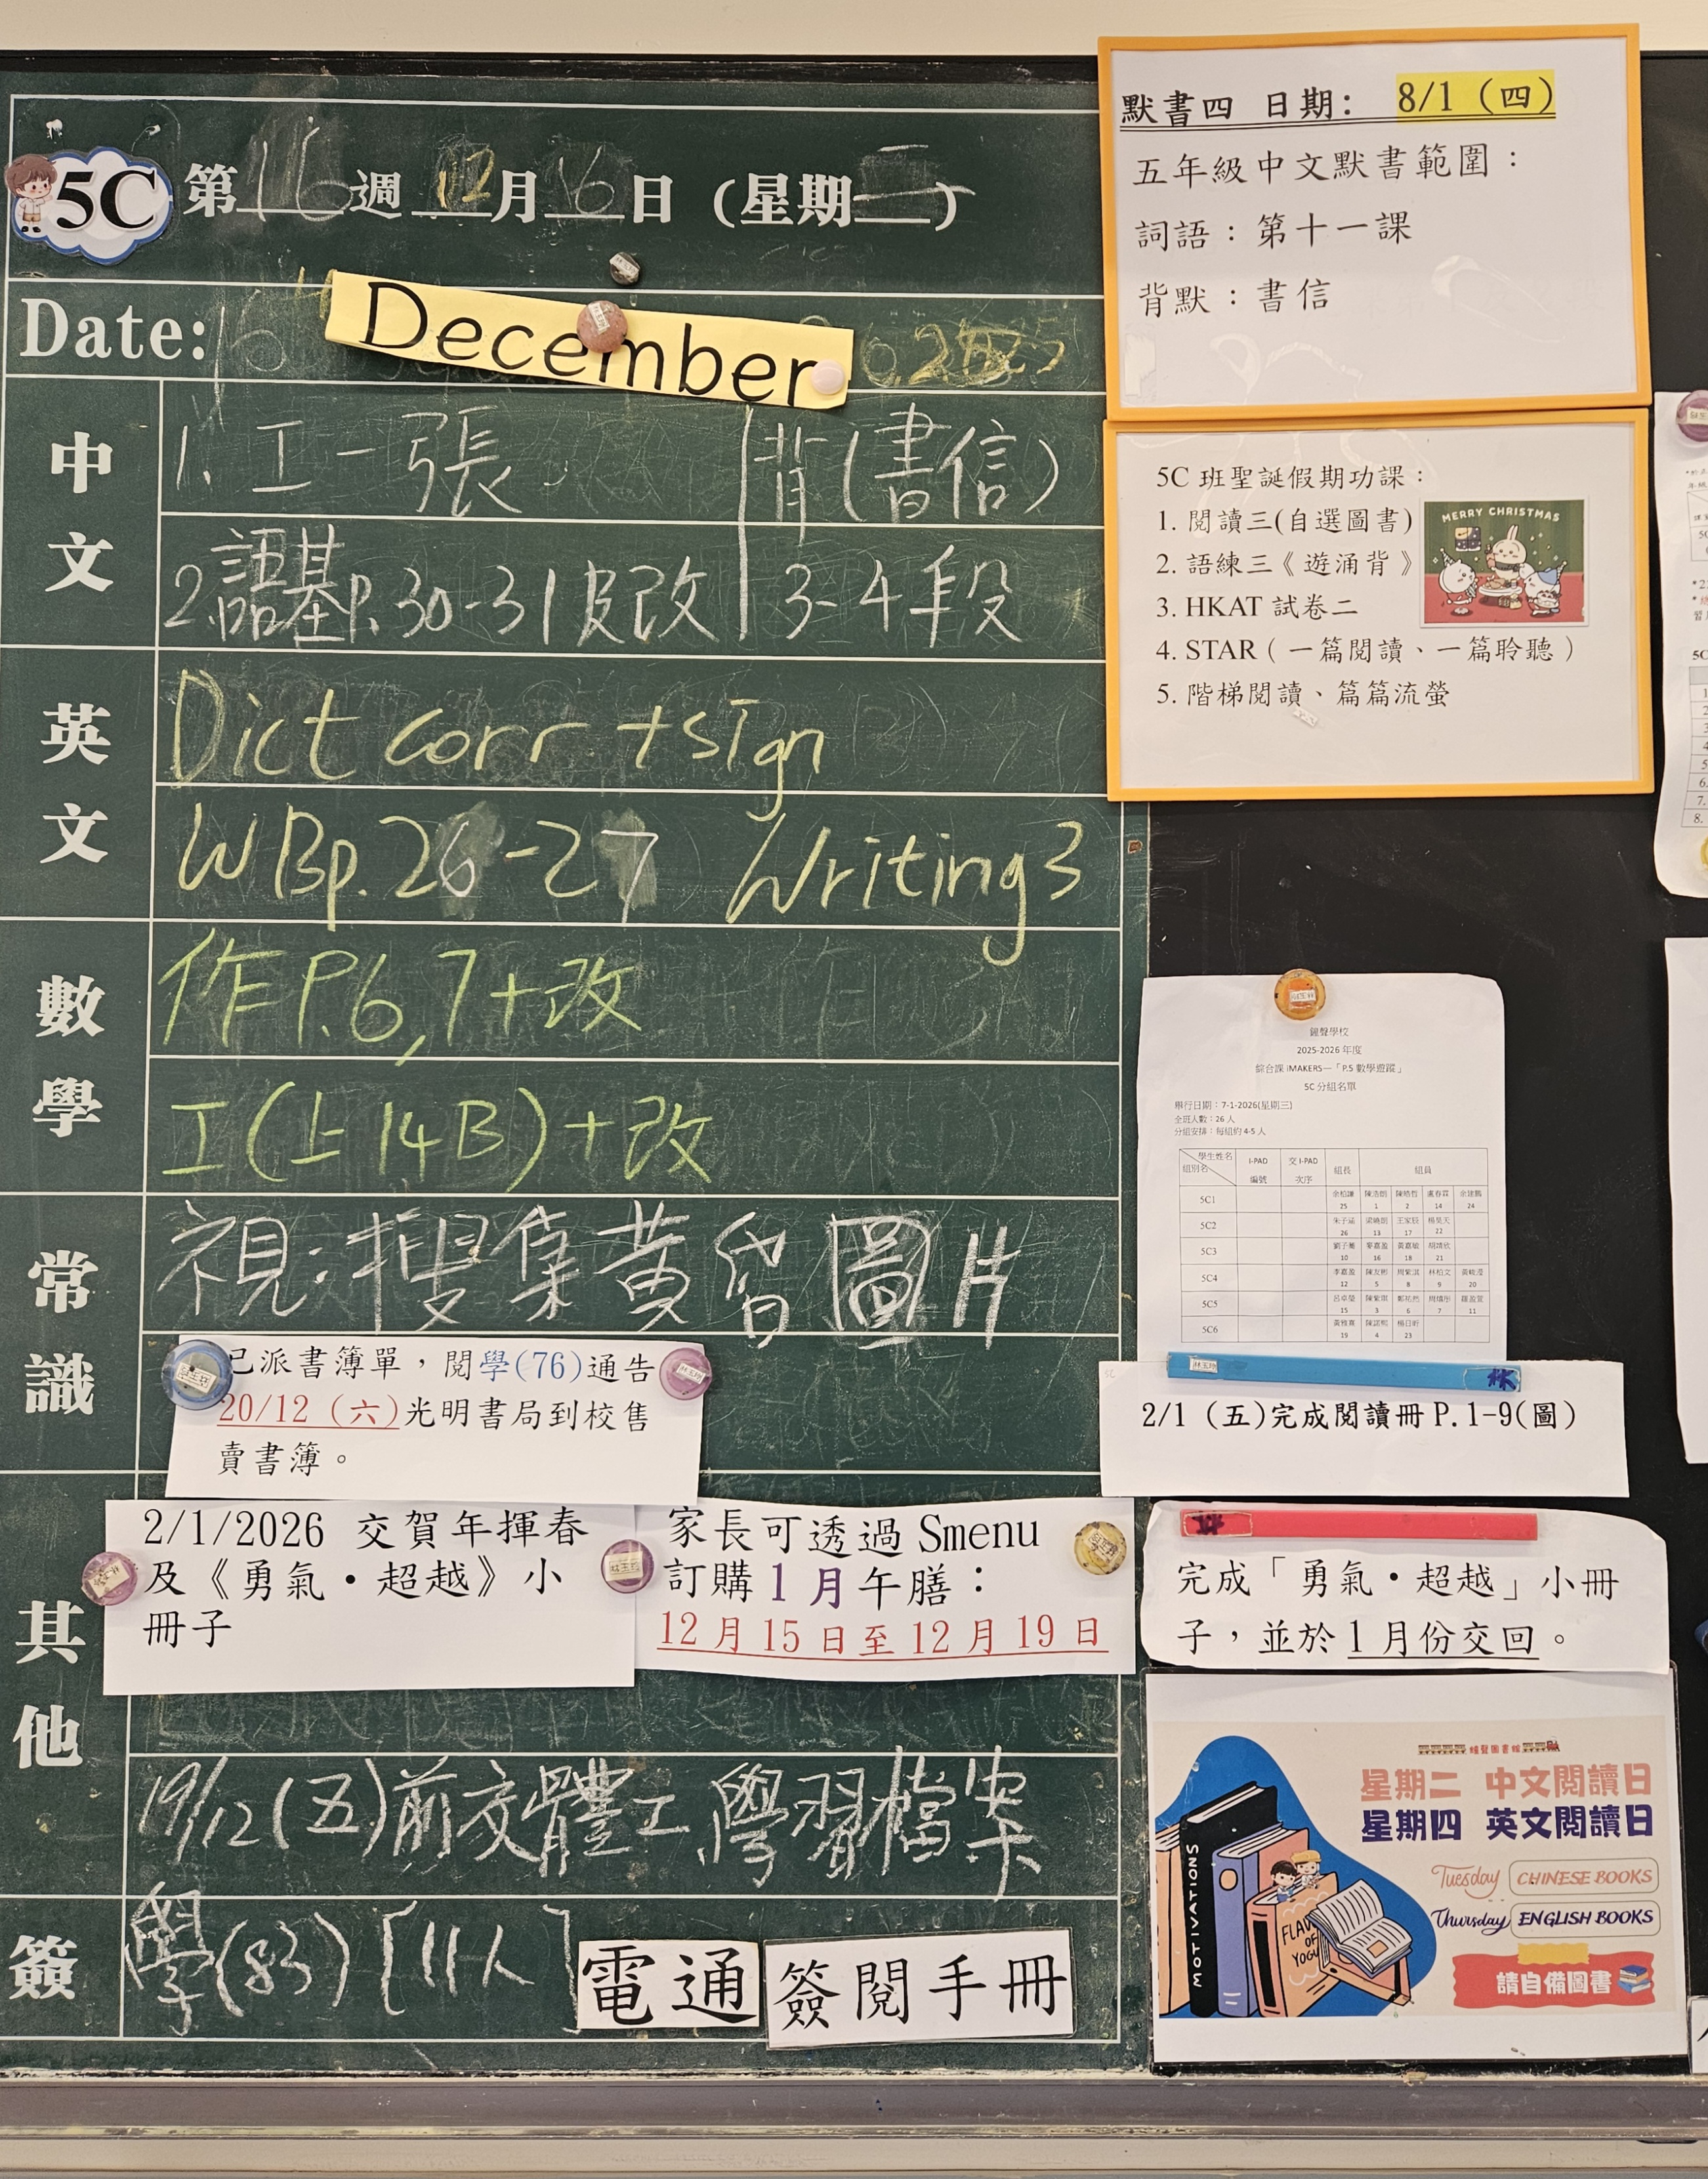 5C
第16週 12月16日 (星期二)
Date: 16 December 2025
中文
1. 工一張
背(書信)
2.語基P.30-31及改
3-4段
英文
Dict corr +sign
WBp.26-27 Writing3
數學
作P.6,7+改
工(上14B)+改
常識
視:搜集黃昏圖片
已派書簿單,閱學(76)通告
20/12(六)光明書局到校售
賣書簿。
其他
2/1/2026 交賀年揮春
及《勇氣・超越》小
冊子
家長可透過 Smenu
訂購1月午膳:
12月15日至12月19日
19/12(五)前交體工學習檔案
簽
學(83) [11人]
電通
簽閱手冊
默書四 日期: 8/1(四)
五年級中文默書範圍:
詞語:第十一課
背默:書信
5C 班聖誕假期功課:
1. 閱讀三(自選圖書)
2. 語練三《遊涌背》
3. HKAT 試卷二
4. STAR(一篇閱讀、一篇聆聽)
5. 階梯閱讀、篇篇流螢
MERRY CHRISTMAS
鐘聲學校
2025-2026 年度
綜合課 iMAKERS—「P.5 數學遊蹤」
5C 分組名單
舉行日期:7-1-2026(星期三)
全班人數:26 人
分組安排:每組約 4-5 人
學生姓名
組別名
I-PAD 編號
交 I-PAD 次序
組長
組員
5C1
25 1 2 14 24
5C2
26 13 17 22
5C3
10 16 18 21
5C4
12 5 8 9 20
5C5
15 3 6 7 11
5C6
19 4 23
2/1(五)完成閱讀冊 P.1-9(圖)
完成「勇氣・超越」小冊
子,並於1月份交回。
鐘聲圖書館
星期二 中文閱讀日
星期四 英文閱讀日
Tuesday CHINESE BOOKS
Thursday ENGLISH BOOKS
請自備圖書
MOTIVATIONS